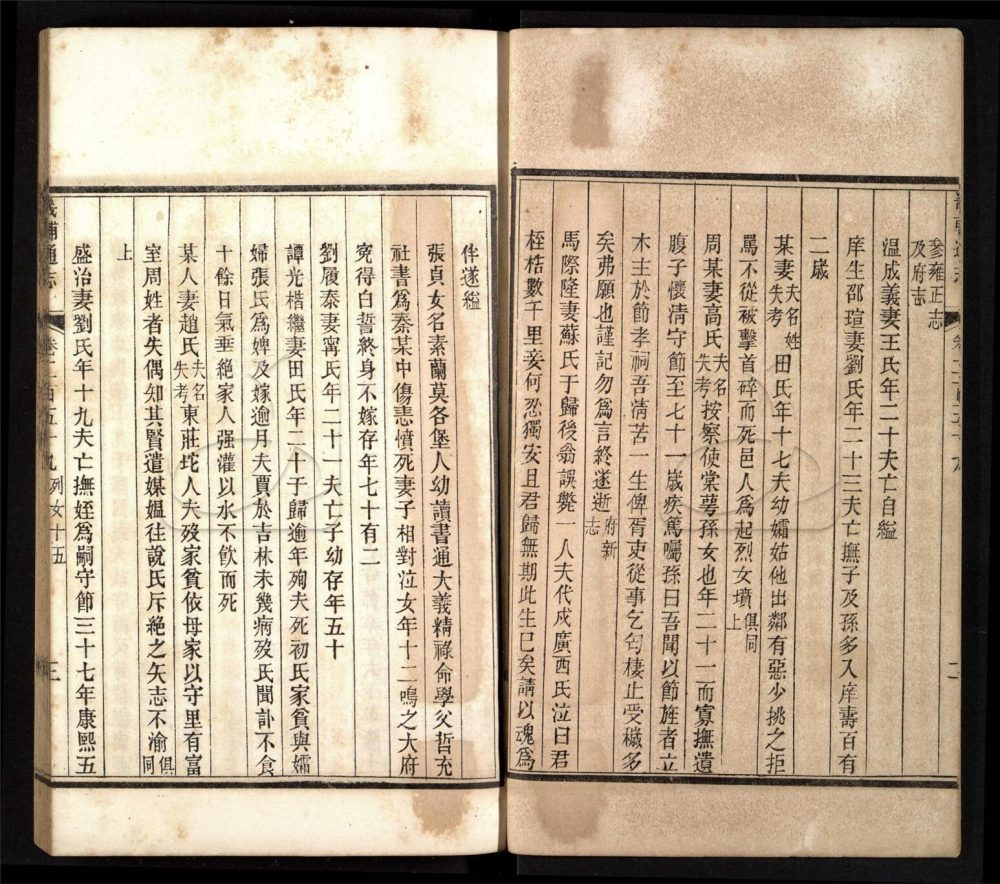 參雍正志
及府志
温成義妻王氏年二十夫亡自縊
庠生邵瑄妻劉氏年二十三夫亡撫子及孫多入庠壽百有
二歲
某妻夫名姓失考田氏年十七夫幼孀姑他出鄰有惡少挑之拒
罵不從被擊首碎而死邑人為起烈女墳俱同上
周某妻高氏夫名失考按察使棠萼孫女也年二十一而寡撫遺
腹子懷清守節至七十一歲疾篤囑孫曰吾聞以節旌者立
木主於節孝祠吾清苦一生俾胥吏從事乞匄棲止受穢多
矣弗願也謹記勿為言終遂逝府新志
馬際隆妻蘇氏于歸後翁誤斃一人夫代戍廣西氏泣曰君
桎梏數千里妾何忍獨安且君歸無期此生已矣請以魂為
伴遂縊
張貞女名素蘭莫各堡人幼讀書通大義精祿命學父哲充
社書為秦某中傷悲憤死妻子相對泣女年十二鳴之大府
寃得白誓終身不嫁存年七十有二
劉履泰妻甯氏年二十一夫亡子幼存年五十
譚光楷繼妻田氏年二十于歸逾年殉夫死初氏家貧與孀
婦張氏為婢及嫁逾月夫賈於吉林未幾病歿氏聞訃不食
十餘日氣垂絕家人强灌以水不飲而死
某人妻趙氏夫名失考東莊坨人夫歿家貧依母家以守里有富
室周姓者失偶知其賢遣媒媪往說氏斥絕之矢志不渝俱同
上
盛治妻劉氏年十九夫亡撫姪為嗣守節三十七年康熙五
畿輔通志
卷二百五十九 列女十五
三